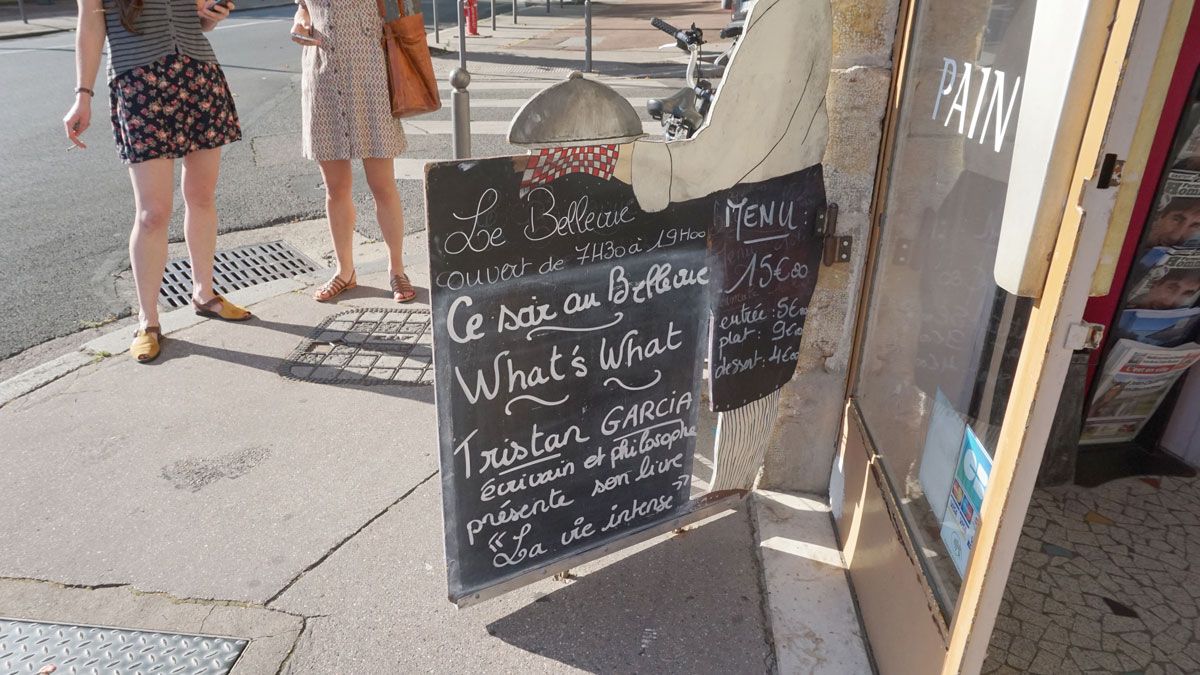 Le Bellevue
ouvert de 7H30 à 19H00
Ce soir au Bellevue
What's What
Tristan GARCIA
écrivain et philosophe
présente son livre
"La vie intense"
MENU
15€00
entrée: 5€00
plat: 9€00
dessert: 4€00
PAIN